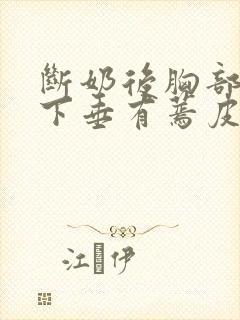 斷奶後胸部
下垂有蔫皮
江 伊